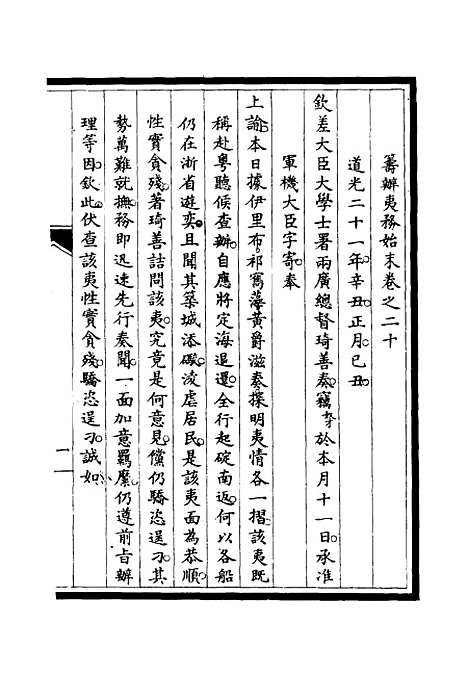 籌辦夷務始末卷之二十
道光二十一年辛丑正月己丑
欽差大臣大學士署兩廣總督琦善奏竊才於本月十一日承准
軍機大臣字寄奉
上諭本日據伊里布祁寯藻黃爵滋奏探明夷情各一摺該夷既
稱赴粵聽候查辦自應將定海退還全行起碇南返何以各船
仍在浙省遊奕且聞其築城添礮淩虐居民是該夷面為恭順
性實貪殘著琦善詰問該夷究竟是何意見儻仍驕恣逞刁其
勢萬難就撫務即迅速先行奏聞一面加意羈縻仍遵前旨辦
理等因欽此伏查該夷性實貪殘驕恣逞刁誠如